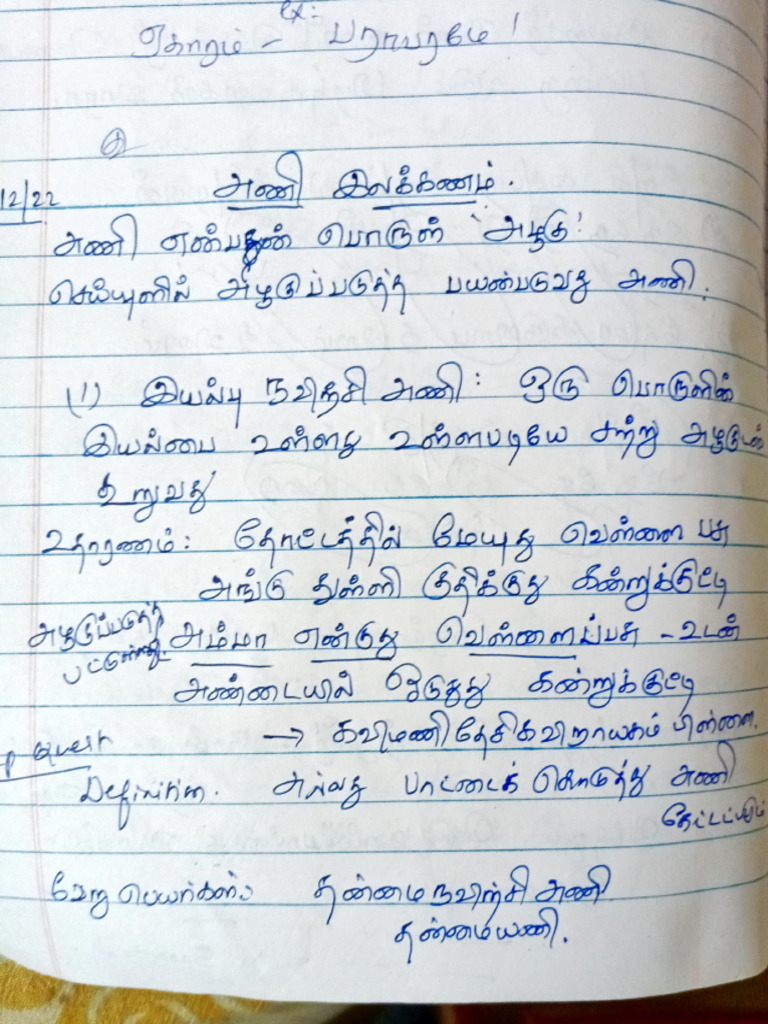 ex:
ஏகாரம் - பராபரமே!
12/22
அணி இலக்கணம்.
அணி என்பதன் பொருள் 'அழகு'
செய்யுளில் அழகுப்படுத்த பயன்படுவது அணி.
(1) இயல்பு நவிற்சி அணி: ஒரு பொருளின்
இயல்பை உள்ளது உள்ளபடியே சற்று அழகுடன்
கூறுவது
உதாரணம்: தோட்டத்தில் மேயுது வெள்ளை பசு
அங்கு துள்ளி குதிக்குது கன்றுக்குட்டி
அழகுப்படுத்த பட்டுள்ளது
அம்மா என்குது வெள்ளைப்பசு - உடன்
அண்டையில் ஓடுது கன்றுக்குட்டி
→ கவிமணி தேசிகவிநாயகம் பிள்ளை.
Quesn
Definition. அல்லது பாட்டைக் கொடுத்து அணி
கேட்டப்படும்
வேறு பெயர்கள்: தன்மை நவிற்சி அணி
தன்மையணி.